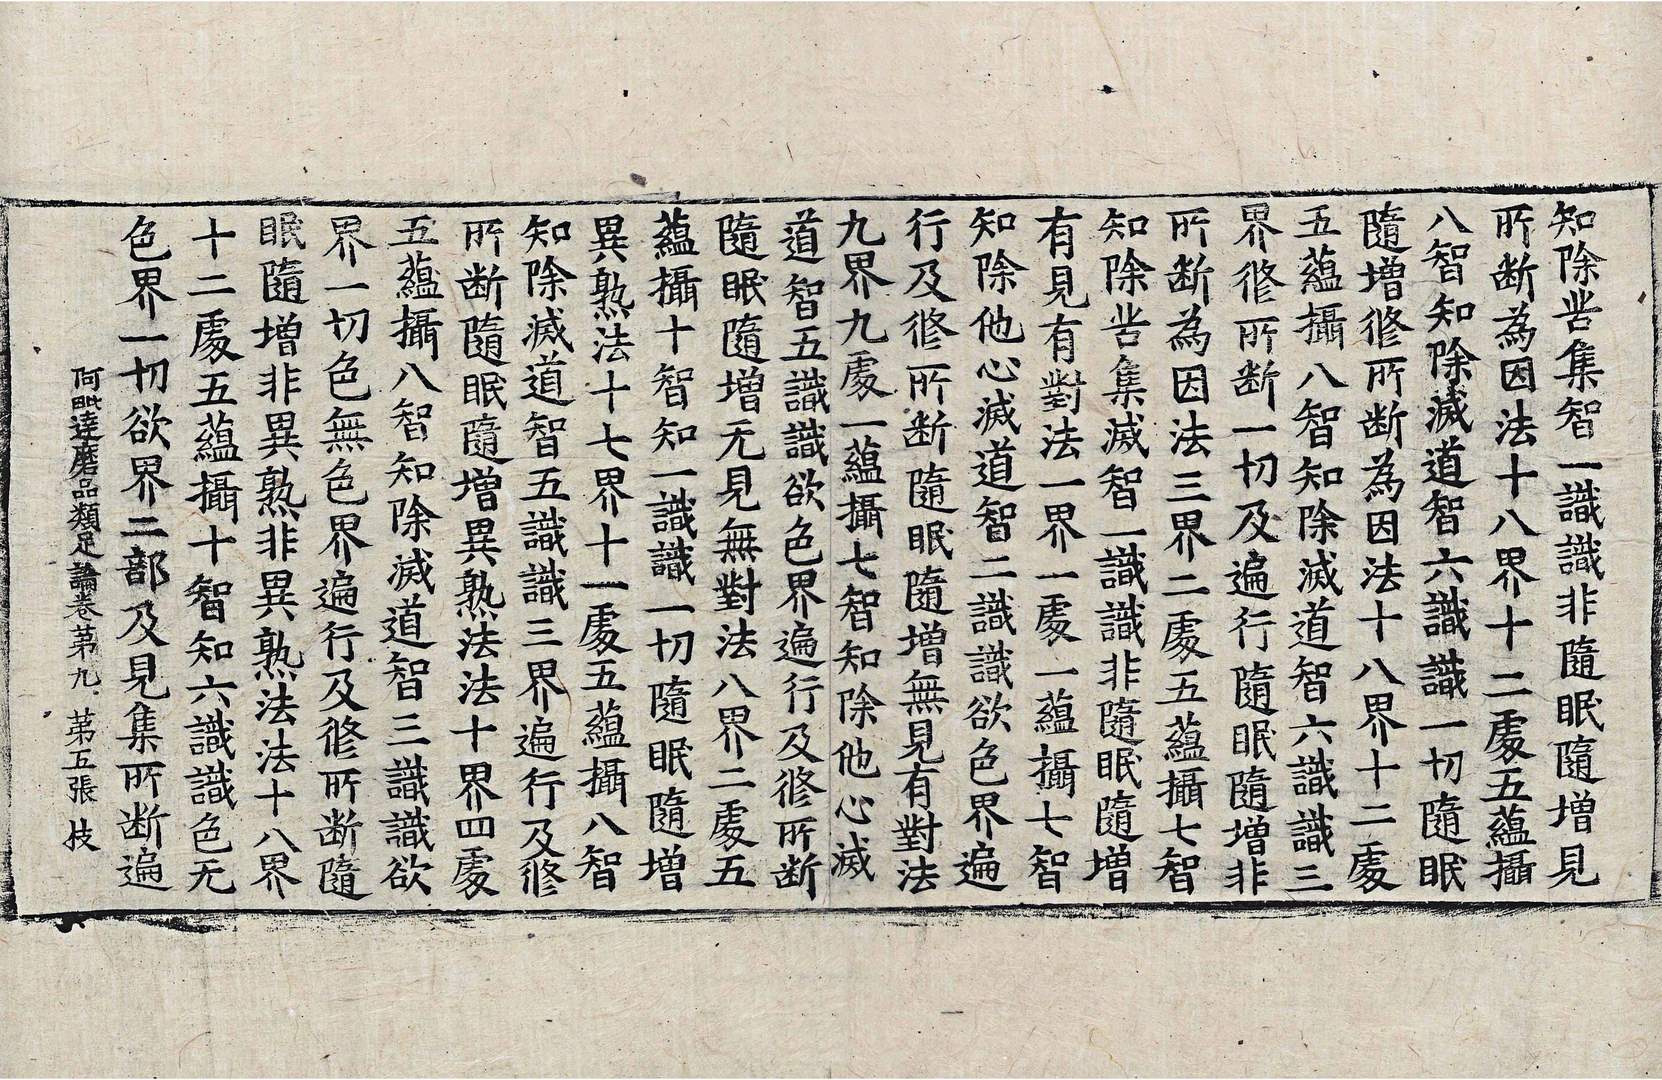 知除苦集智一識識非隨眠隨增見
所断為因法十八界十二處五蘊攝
八智知除滅道智六識識一切隨眠
隨增修所断為因法十八界十二處
五蘊攝八智知除滅道智六識識三
界修所断一切及遍行隨眠隨增非
所断為因法三界二處五蘊攝七智
知除苦集滅智一識識非隨眠隨增
有見有對法一界一處一蘊攝七智
知除他心滅道智二識識欲色界遍
行及修所断隨眠隨增無見有對法
九界九處一蘊攝七智知除他心滅
道智五識識欲色界遍行及修所断
隨眠隨增无見無對法八界二處五
蘊攝十智知一識識一切隨眠隨增
異熟法十七界十一處五蘊攝八智
知除滅道智五識識三界遍行及修
所断隨眠隨增異熟法法十界四處
五蘊攝八智知除滅道智三識識欲
界一切色無色界遍行及修所断隨
眠隨增非異熟非異熟法法十八界
十二處五蘊攝十智知六識識色无
色界一切欲界二部及見集所断遍
阿毗達磨品類足論卷第九 第五張 伎